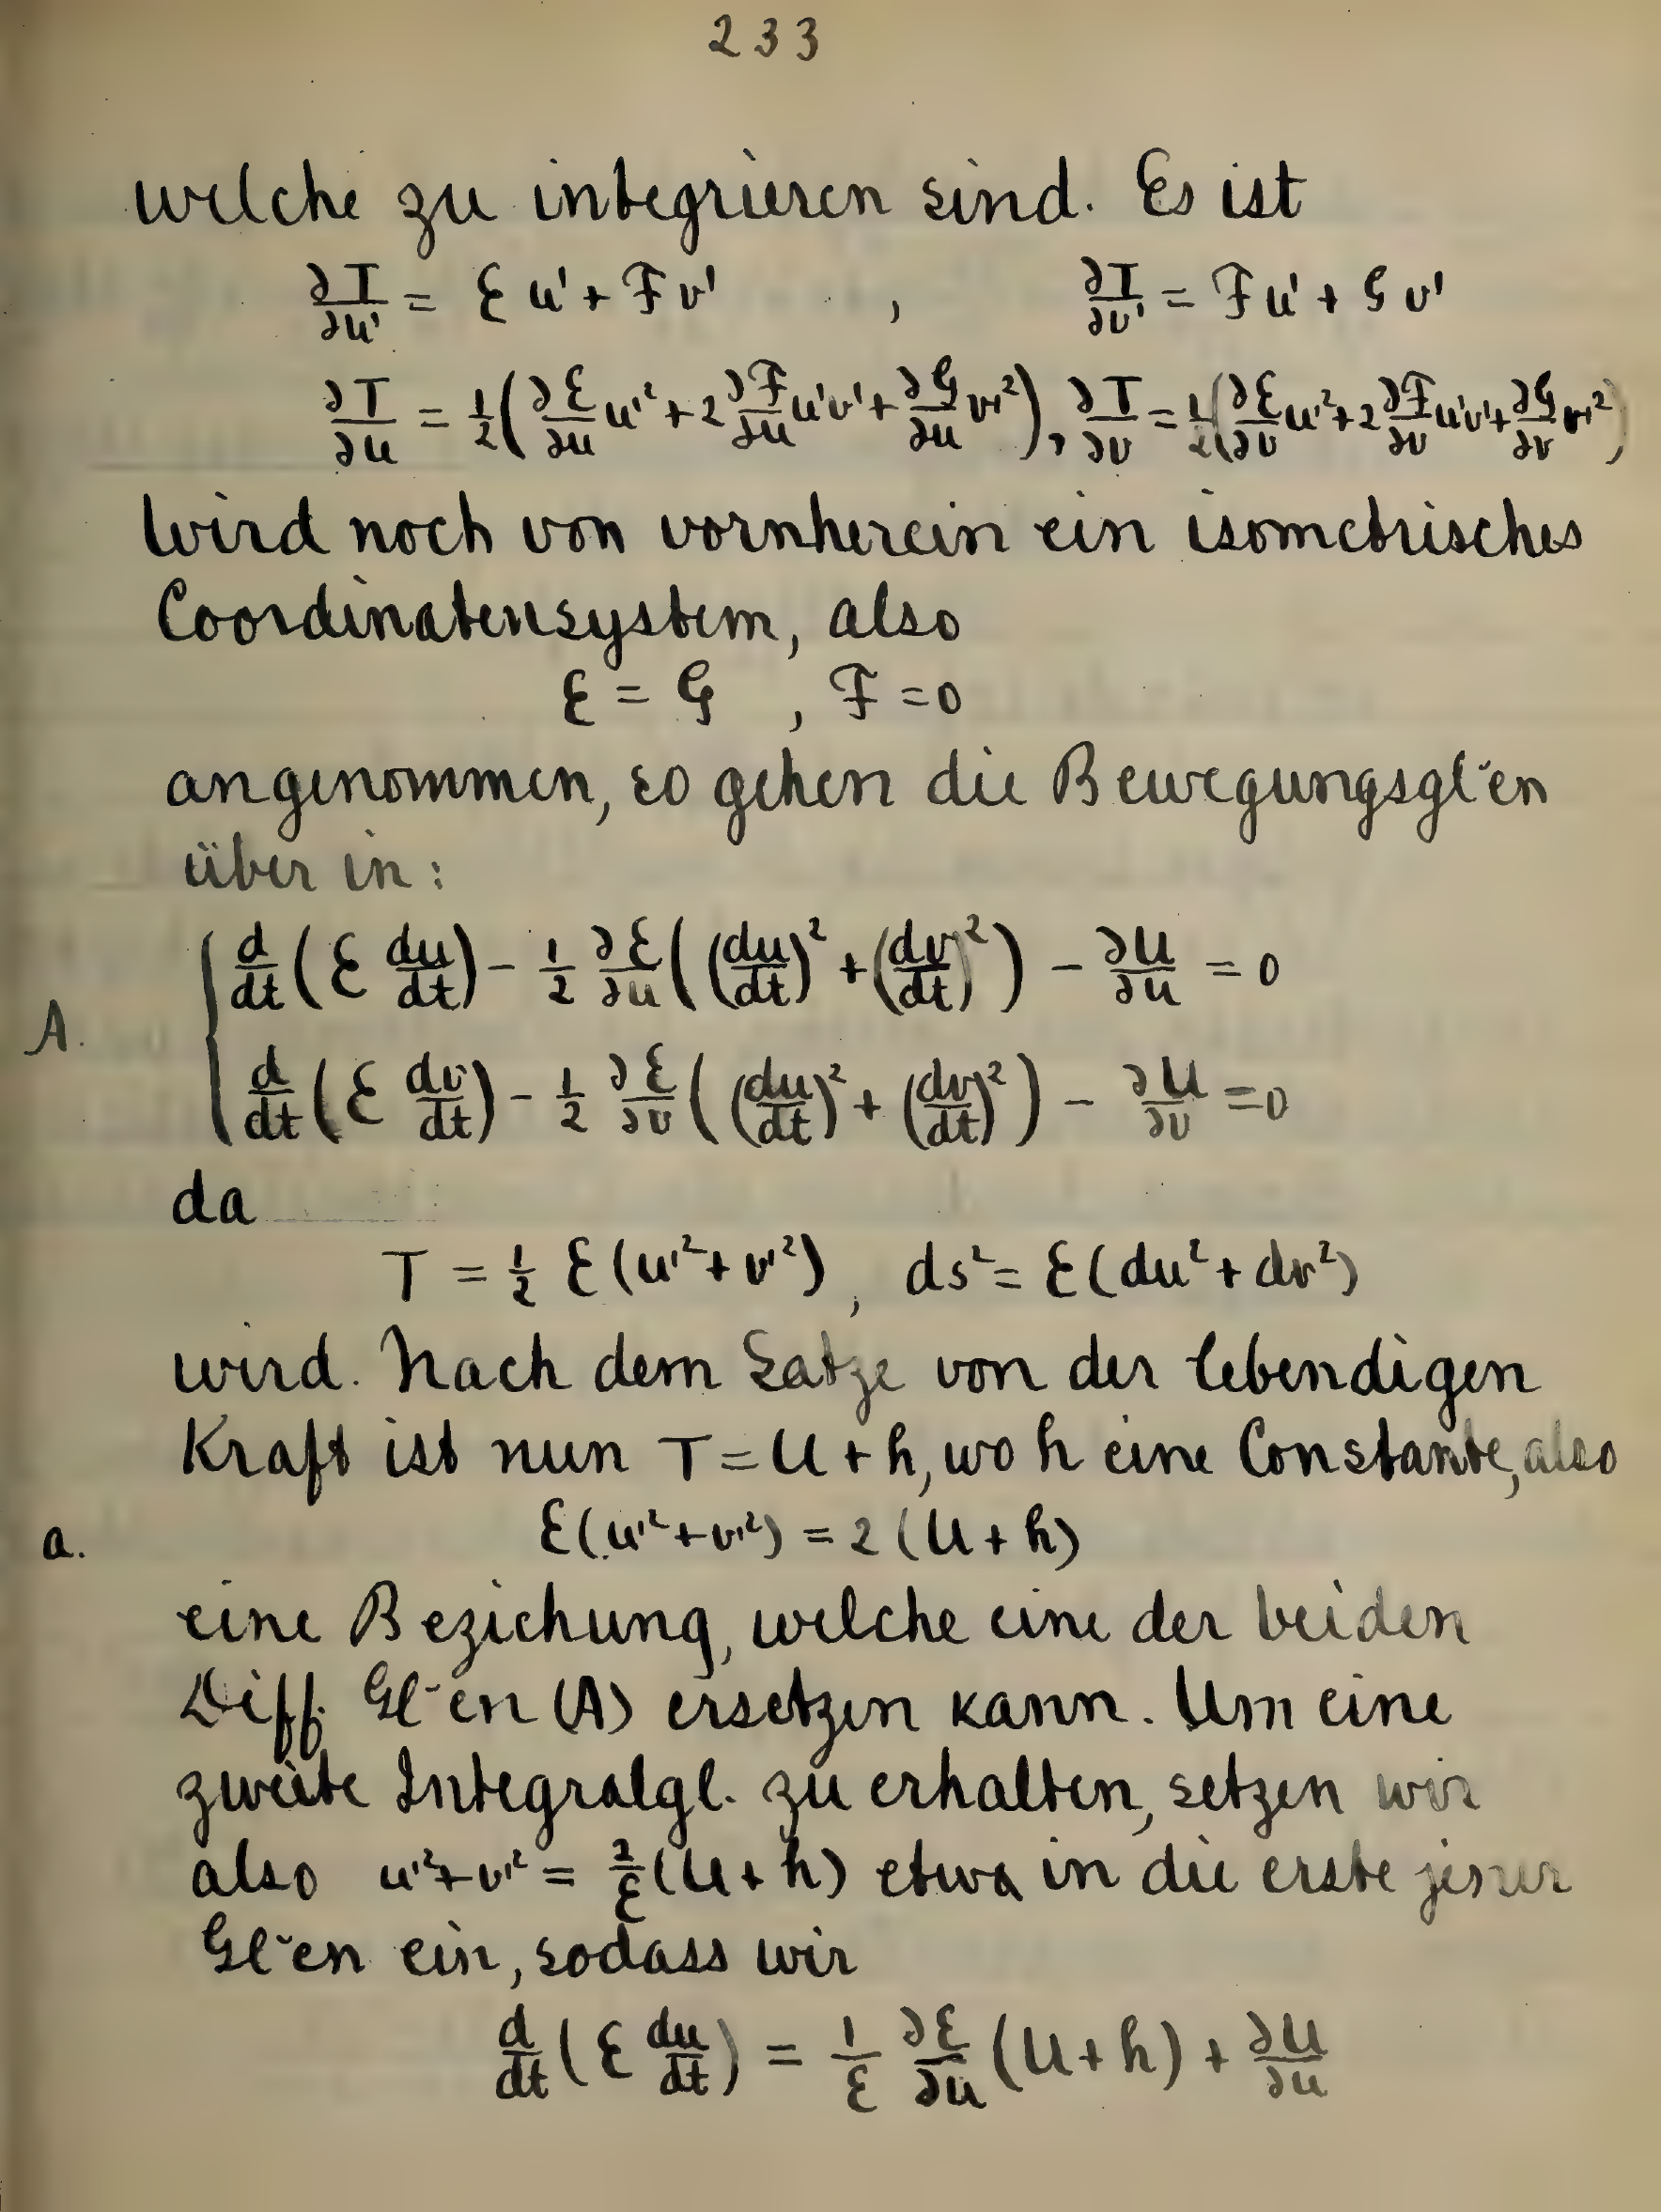 233
welche zu integrieren sind. Es ist
∂T/∂u' = ℰu' + ℱv' , ∂T/∂v' = ℱu' + 𝒢v'
∂T/∂u = 1/2(∂ℰ/∂u u'² + 2 ∂ℱ/∂u u'v' + ∂𝒢/∂u v'²), ∂T/∂v = 1/2(∂ℰ/∂v u'² + 2 ∂ℱ/∂v u'v' + ∂𝒢/∂v v'²)
Wird noch von vornherein ein isometrisches
Coordinatensystem, also
ℰ = 𝒢 , ℱ = 0
angenommen, so gehen die Bewegungsgl̄en
über in:
d/dt(ℰ du/dt) - 1/2 ∂ℰ/∂u((du/dt)² + (dv/dt)²) - ∂U/∂u = 0
A.
d/dt(ℰ dv/dt) - 1/2 ∂ℰ/∂v((du/dt)² + (dv/dt)²) - ∂U/∂v = 0
da
T = 1/2 ℰ(u'² + v'²), ds² = ℰ(du² + dv²)
wird. Nach dem Satze von der lebendigen
Kraft ist nun T = U + h, wo h eine Constante, also
a. ℰ(u'² + v'²) = 2(U + h)
eine Beziehung, welche eine der beiden
Diff. Gl̄en (A) ersetzen kann. Um eine
zweite Integralgl. zu erhalten, setzen wir
also u'² + v'² = 2/ℰ(U + h) etwa in die erste jener
Gl̄en ein, sodass wir
d/dt(ℰ du/dt) = 1/ℰ ∂ℰ/∂u (U + h) + ∂U/∂u